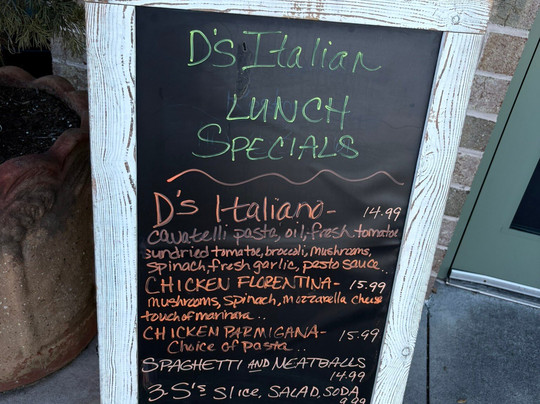 D's Italian
LUNCH
SPECIALS
D's Italiano- 14.99
cavatelli pasta, oil, fresh tomatoe
sundried tomatoe, broccoli, mushrooms,
spinach, fresh garlic, pesto sauce..
CHICKEN FLORENTINA- 15.99
mushrooms, spinach, mozzarella cheese
touch of marinara..
CHICKEN PARMIGANA- 15.99
Choice of Pasta..
SPAGHETTI AND MEATBALLS
14.99
3-S's Slice, SALAD, SODA
9.99